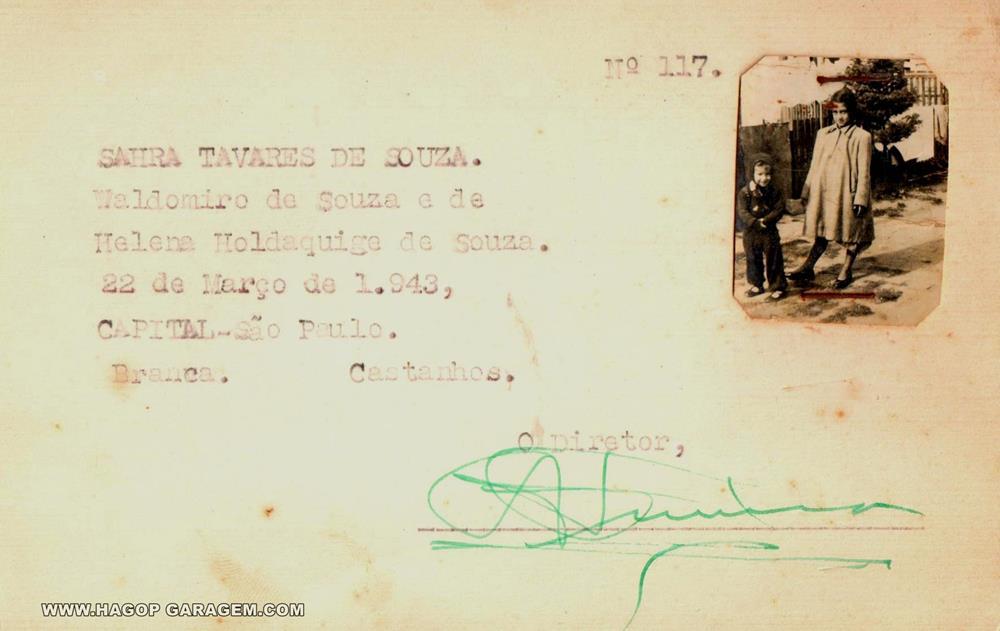 Nº 117.
SAHRA TAVARES DE SOUZA.
Waldomiro de Souza e de
Helena Holdaquige de Souza.
22 de Março de 1.943,
CAPITAL-São Paulo.
Branca. Castanhos.
O Diretor,
WWW.HAGOP GARAGEM.COM